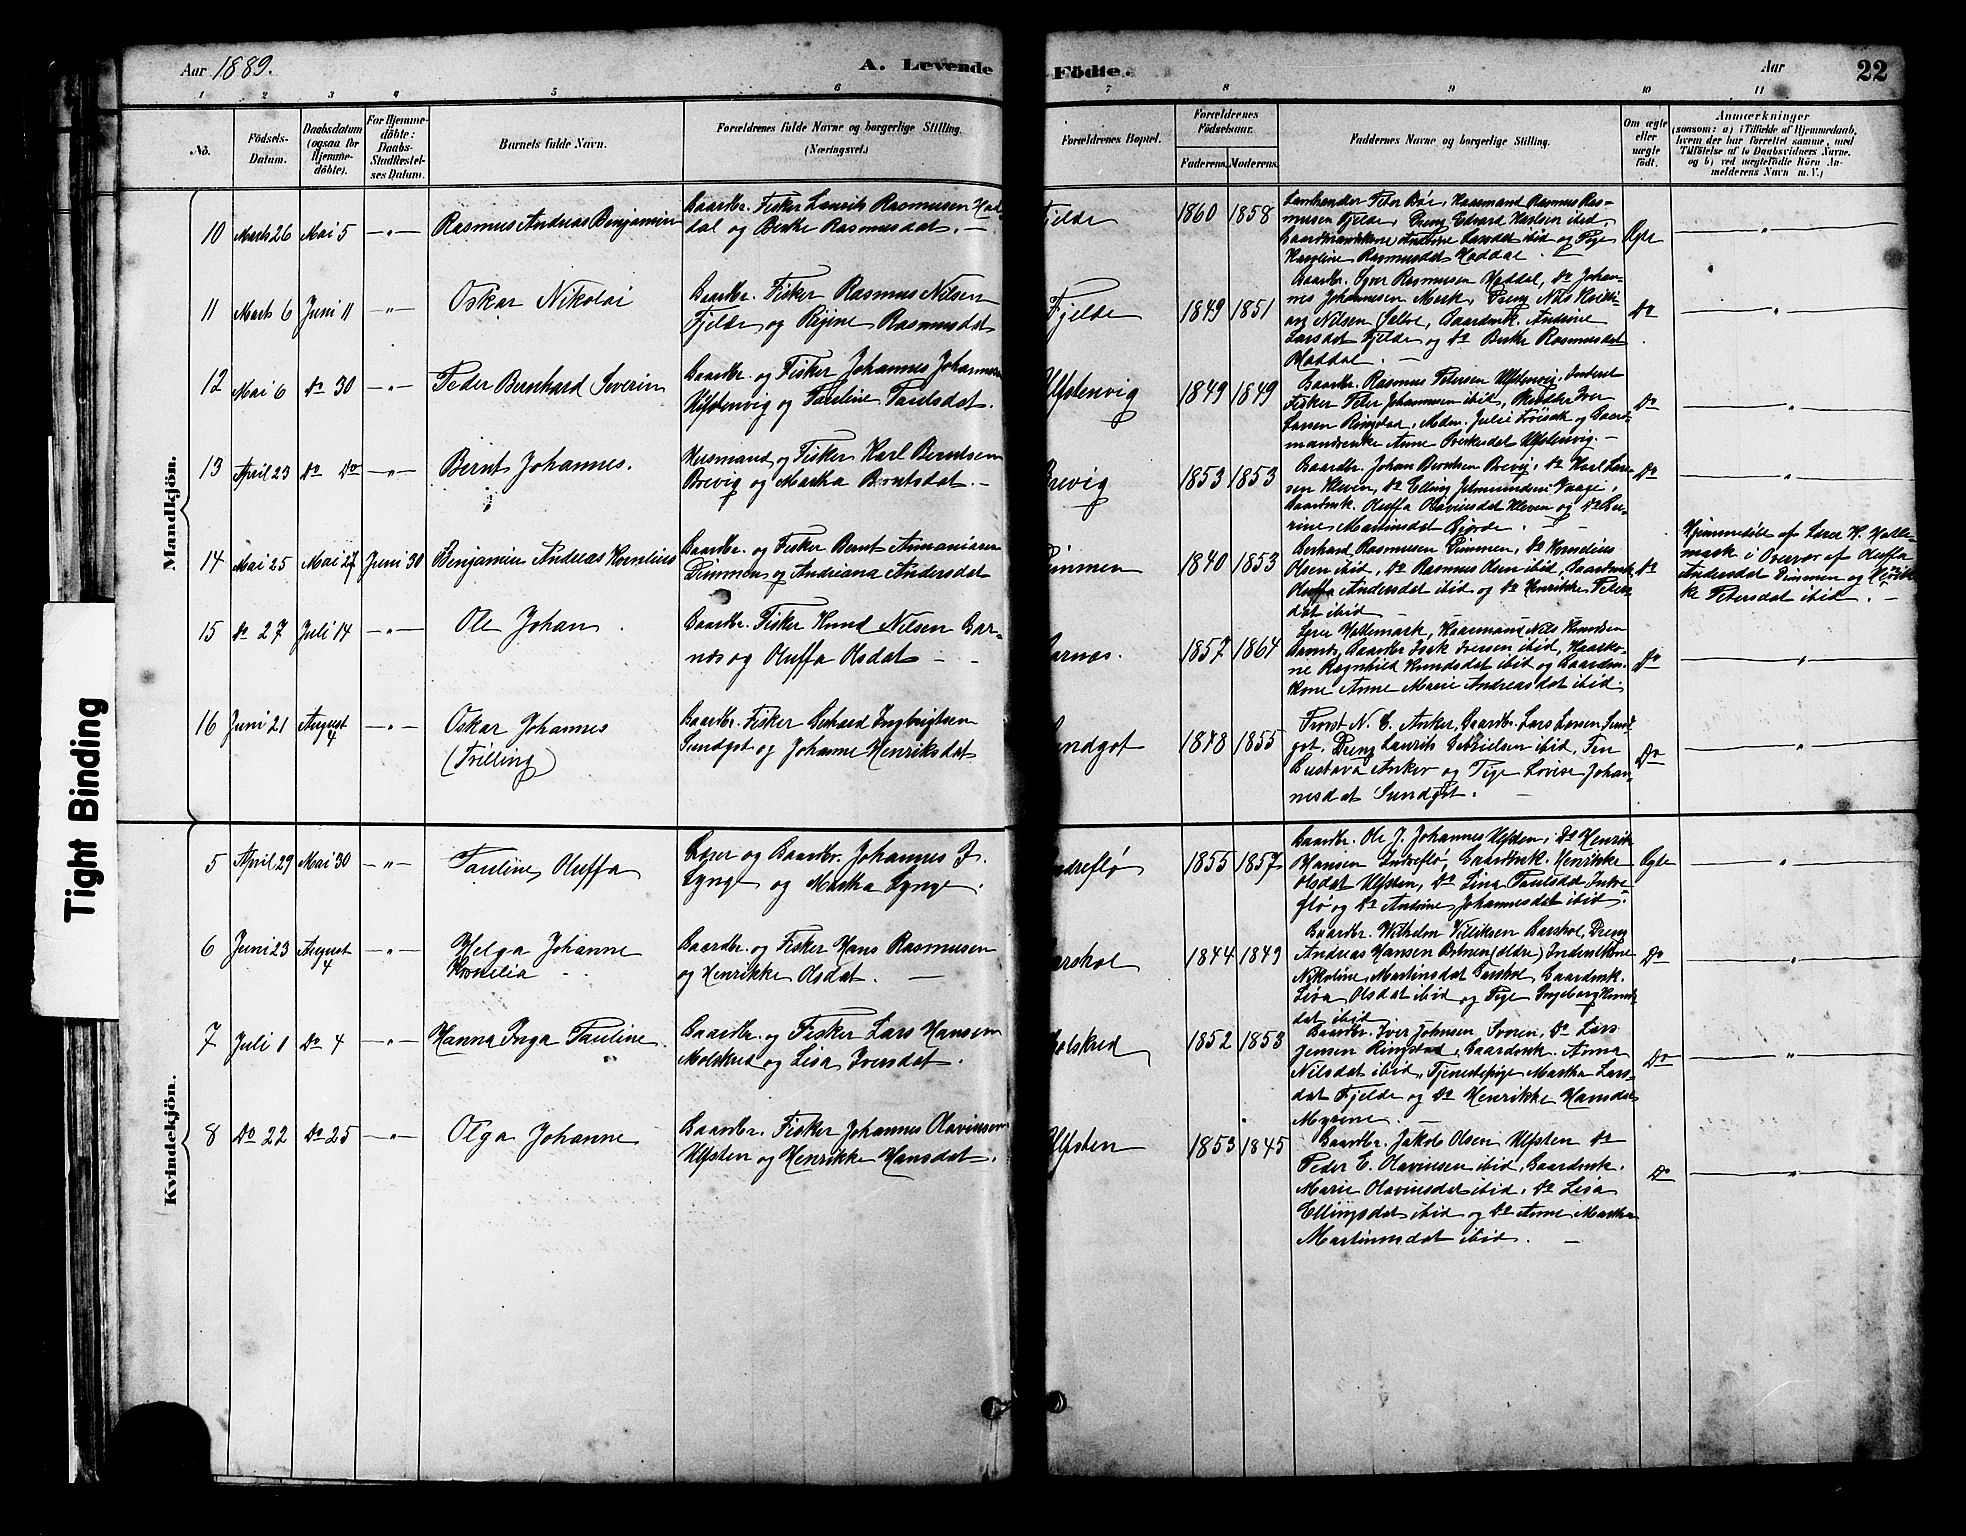 Aar 1889.
A. Levende
Födte.
Aar
22
1 2 3 4 5 6 7 8 9 10 11
No.
Födsels-
Datum.
Daabsdatum
(ogsaa for
Hjemme-
döbte).
For Hjemme-
döbte:
Daabs-
Stadfæstel-
ses Datum.
Barnets fulde Navn.
Forældrenes fulde Navne og borgerlige Stilling.
(Næringsvei.)
Forældrenes Bopæl.
Forældrenes
Födselsaar.
Faderens. Moderens.
Faddernes Navne og borgerlige Stilling.
Om ægte
eller
uægte
födt.
Anmærkninger
(saasom: a) i Tilfælde af Hjemmedaab,
hvem der har forrettet samme, med
Tilföielse af to Daabsvidners Navne,
og b) ved uægtefödte Börn An-
melderens Navn m. V.)
Tight Binding
Mandkjön.
10 Marts 26 Mai 5 —"— Rasmus Andreas Benjamin
Gaardbr. Fisker Laurits Rasmusen Had-
dal og Berthe Rasmusdat. —
Fjelde 1860 1858
Landhandler Peter Bøe, Kaarmand Rasmus Ras-
musen Fjelde, Dreng Edvard Karlsen ibid
Gaardmandskone Andrine Larsdat ibid og Pige
Karoline Rasmusdat Haddal.
Ægte —"—
11 Marts 6 Juni 11 —"— Oskar Nikolai
Gaardbr. Fisker Rasmus Nilsen
Fjelde og Regine Rasmusdat
Fjelde 1849 1851
Gaardbr. Rasmusen Haddal, Do Johan-
nes Johannesen Mork, Dreng Nils
Nilsen Gaardmk. Andrine
Larsdat Fjelde og Do Berthe Rasmusdat
Haddal. —
Do "
12 Mai 6 Do 30 —"— Peder Bernhard Severin
Gaardbr. og Fisker Johannes Johannesen
Ulfstenvig og Pauline Paulsdat.
Ulfstenvig 1849 1849
Gaardbr. Rasmus Petersen Ulfstenvig, Inderst
Fisker Peter Johannesen ibid, Iver
Larsen Ringstad, Mdm. Julie og Gaard-
mandsenke Anne Ulfstenvig. —
Do —"—
13 April 23 Do Do —"— Bernt Johannes.
Husmand og Fisker Karl Berntsen
Brevig og Martha Berntsdat. —
Brevig 1853 1853
Gaardbr. Johan Berntsen Brevig, Do Karl Lar-
sen Kleven, Do Elling Vaage,
Gaardmk. Oluffa Olavinsdat Kleven og Do
Martinsdat Gjørde.
Do "
14 Mai 25 Mai 27 Juni 30 Benjamin Andreas Kornelius
Gaardbr. og Fisker Bernt Ananiasen
Dimmen og Andriana Andersdat
Dimmen 1840 1853
Gerhard Rasmusen Dimmen, Do Kornelius
Olsen ibid, Do Rasmus Olsen ibid, Gaardmk.
Oluffa Andersdat ibid og Do Henrikke Peters-
dat ibid
Do
Hjemmedøbt af Lærer K. Halle-
mark i Overvær af Oluffa
Andersdat Dimmen og Henrik-
ke Petersdat ibid. —
15 Do 27 Juli 14 —"— Ole Johan
Gaardbr. Fisker Knud Nilsen Gar-
næs og Oluffa Olsdat — —
Garnæs. 1857 1864
Lærer Hallemark, Kaarmand Nils Knudsen
Garnæs, Gaardbr. Isak Iversen ibid, Kaarko-
ne Ragnhild Knudsdat ibid og Gaardm.
kone Anne Marie Andreasdat ibid.
Do "
16 Juni 21 August
4 —"— Oskar Johannes
(Trilling)
Gaardbr. Fisker Gerhard Ingbrigtsen
Sundgot og Johanne Henriksdat
Sundgot 1848 1855
Provst N. E. Anker, Gaardbr. Lars Larsen Sund-
got, Dreng Laurits Gabrielsen ibid, Frn
Gustava Anker og Pige Lovise Johan-
nesdat Sundgot.
Do "
Kvindekjön.
5 April 29 Mai 30 —"— Pauline Oluffa
Lærer og Gaardbr. Johannes J.
Lynge og Martha Lynge.
Indreflø 1855 1857
Gaardbr. Ole J. Johannes Ulfsten, Do Henrik
Hansen Indreflø, Gaardmk. Henrikke
Olsdat Ulfsten, Do Lina Paulsdat Indre-
flø og Do Andrine Johannesdat ibid.
Ægte "
6 Juni 23 August
4 —"— Helga Johanne
Kornelia
Gaardbr. og Fisker Hans Rasmusen
og Henrikke Olsdat. —
Garshol 1844 1849
Gaardbr. Wilhelm Villiksen Garshol, Dreng
Andreas Hansen (eldre) Inderstkone
Nikoline Martinsdat Garshol, Gaardmk.
Lisa Olsdat ibid og Pige Ingeborg Knuds-
dat ibid
Do "
7 Juli 1 Do 4 —"— Hanna Inga Pauline.
Gaardbr. og Fisker Lars Hansen
Molskred og Lisa Iversdat.
Molskred 1852 1853
Gaardbr. Iver Johnsen, Do Lars
Jensen Ringstad, Gaardmk. Anna
Nilsdat ibid, Tjenestepige Martha Lars-
dat Fjelde og Do Henrikke Hansdat
Myrene.
Do "
8 Do 22 Do 25 —"— Olga Johanne
Gaardbr. Fisker Johannes Olavinsen
Ulfsten og Henrikke Hansdat.
Ulfsten 1853 1845
Gaardbr. Jakob Olsen Ulfsten Do
Peder E. Olavinsen ibid, Gaardmk.
Marie Olavinsdat ibid, Do Lisa
Ellingsdat ibid og Do Anne Martha
Martinusdat ibid. —
Do "